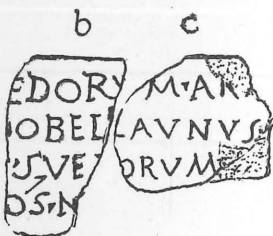 b c
EDORV M·A
OBEL LAVNVS
·SVE ORVM
OS·N